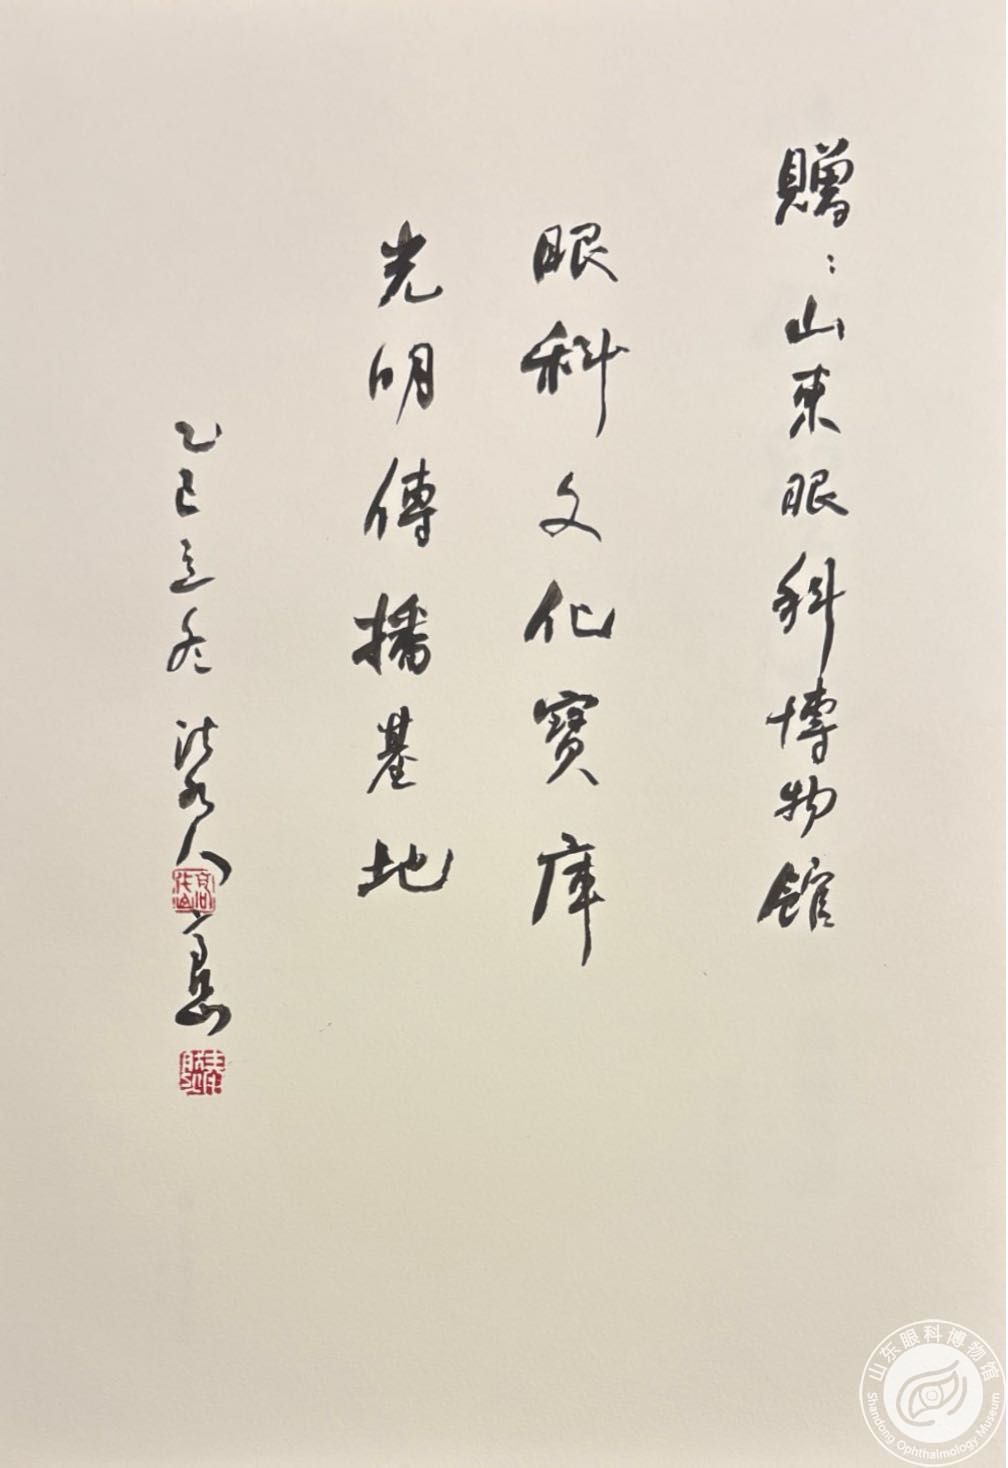 贈：山東眼科博物館
眼科文化寶庫
光明傳播基地
乙巳立冬
人
山东眼科博物馆
Shandong Ophthalmology Museum